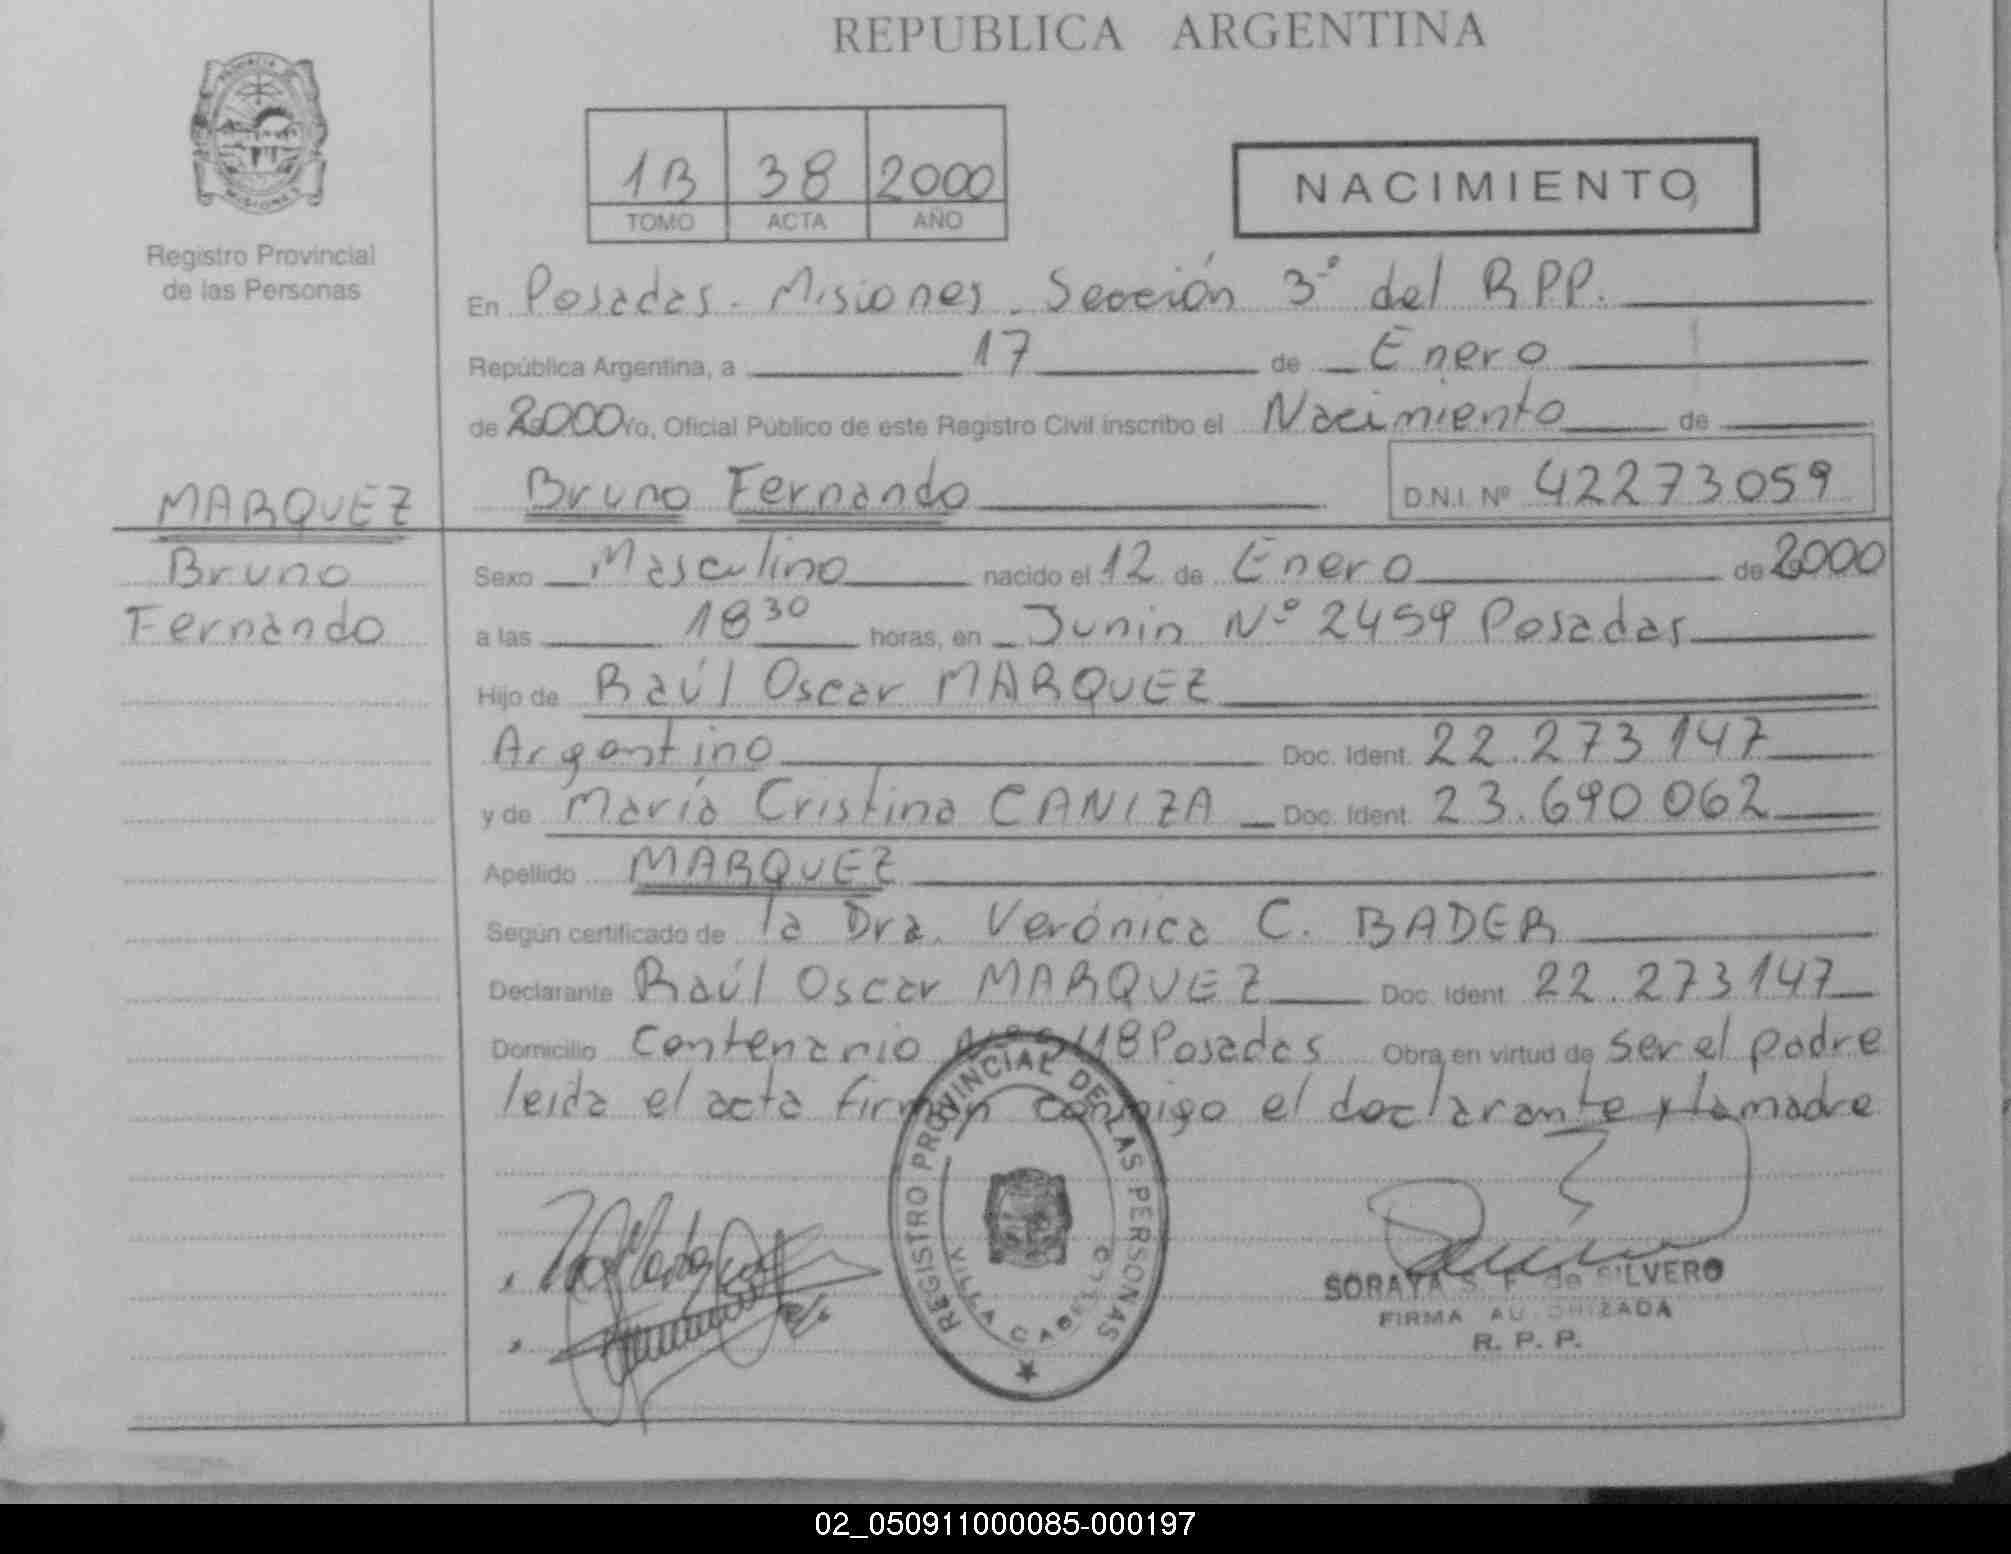 REPUBLICA ARGENTINA
PROVINCIA
MISIONES
Registro Provincial
de las Personas
1B 38 2000
TOMO ACTA AÑO
NACIMIENTO
En Posadas - Misiones. Sección 3º del RPP.
República Argentina, a 17 de Enero
de 2000 Yo, Oficial Público de este Registro Civil inscribo el Nacimiento de
Bruno Fernando D.N.I. Nº 42273059
MARQUEZ
Bruno
Fernando
Sexo Masculino nacido el 12 de Enero de 2000
a las 18 30 horas, en Junin Nº 2459 Posadas
Hijo de Raúl Oscar MARQUEZ
Argentino Doc. Ident. 22.273147
y de María Cristina CANIZA Doc. Ident. 23.690062
Apellido MARQUEZ
Según certificado de la Dra. Verónica C. BADER
Declarante Raúl Oscar MARQUEZ Doc. Ident. 22.273147
Domicilio Centenario Posadas Obra en virtud de ser el padre
leida el acta firman conmigo el declarante y la madre
REGISTRO PROVINCIAL DE LAS PERSONAS
VILLA CABELLO
SORAYA S. F. de SILVERO
FIRMA AUTORIZADA
R. P. P.
02_050911000085-000197